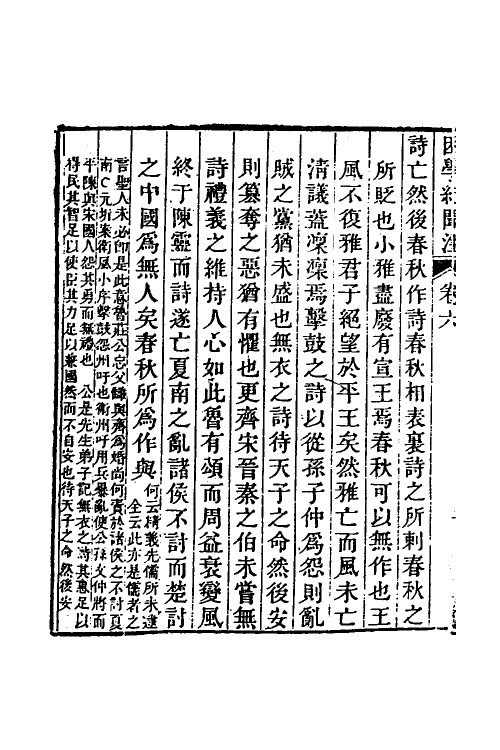 困學紀聞注 卷六
詩亡然後春秋作詩春秋相表裏詩之所刺春秋之
所貶也小雅盡廢有宣王焉春秋可以無作也王
風不復雅君子絕望於平王矣然雅亡而風未亡
淸議蓋凜凜焉擊鼓之詩以從孫子仲爲怨則亂
賊之黨猶未盛也無衣之詩待天子之命然後安
則篡奪之惡猶有懼也更齊宋晉秦之伯未嘗無
詩禮義之維持人心如此魯有頌而周益衰變風
終于陳靈而詩遂亡夏南之亂諸侯不討而楚討
之中國爲無人矣春秋所爲作與
何云精義先儒所未逮
全云此亦是儒者之
言聖人未必卽是此意魯莊公忘父讎與齊爲婚尚何責於諸侯之不討夏
南○元圻案衛風小序擊鼓怨州吁也衛州吁用兵暴亂使公孫文仲將而
平陳與宋國人怨其勇而無禮也 公是先生弟子記無衣之詩其惠足以
得民其智足以使臣其力足以兼國然而不自安也待天子之命然後安